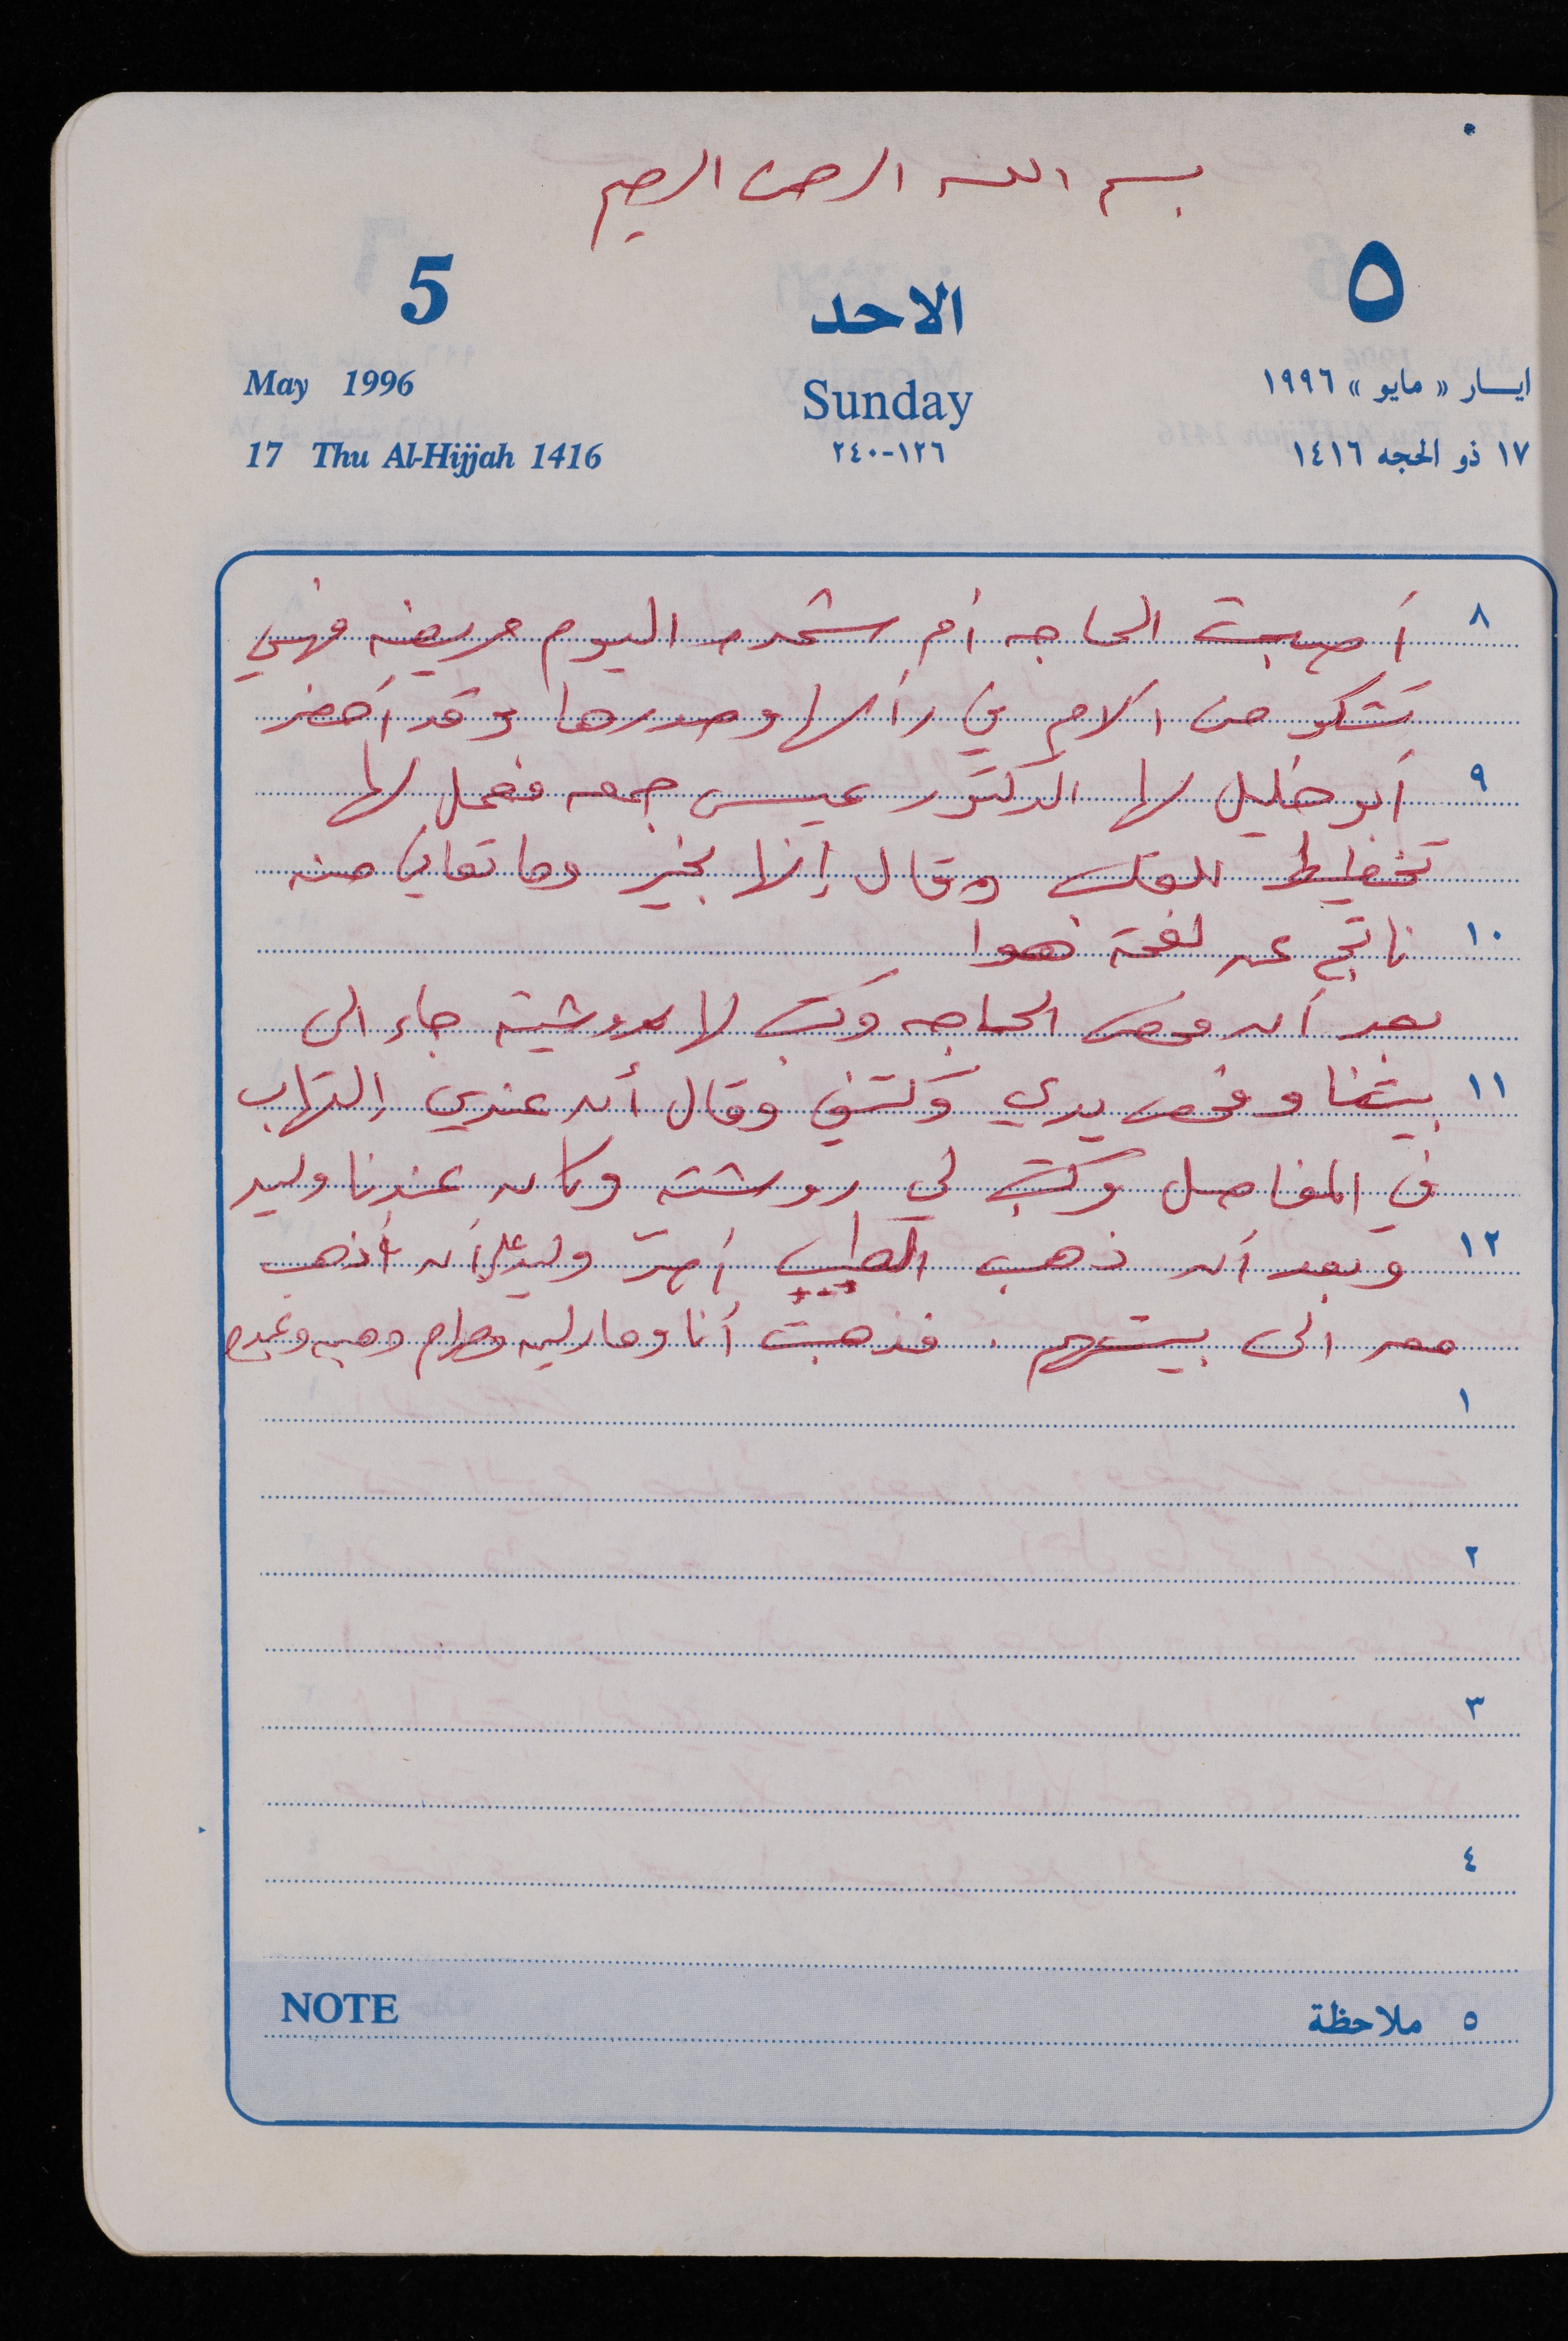 بسم الله الرحمن الرحيم
5 الاحد ٥
May 1996 Sunday ايسار « مايو » ١٩٩٦
17 Thu Al-Hijjah 1416 ١٢٦-٢٤٠ ١٧ ذو الحجه ١٤١٦
٨ أصبحت الحاجه أم اليوم مريضه فهي
تشكو من آلام في رأسها وصدرها وقد أحضر
٩ أبو خليل لها الدكتور عيسى جمعه فعمل لها
تخطيط للقلب وقال إنها بخير وما تعاني منه
١٠ ناتج عن لفحة هوا
بعد أن فحص الحاجه وكتب لها روشيته جاء الى
١١ بيتنا وفحص يدي وكتفي وقال أن عندي التهاب
في المفاصل وكتب لي روشته وكان عندنا وليد
١٢ وبعد أن ذهب الطبيب أصرّ وليد على أن أذهب
معه الى بيتهم . فذهبت أنا ومارلين
١
٢
٣
٤
NOTE ٥ ملاحظة